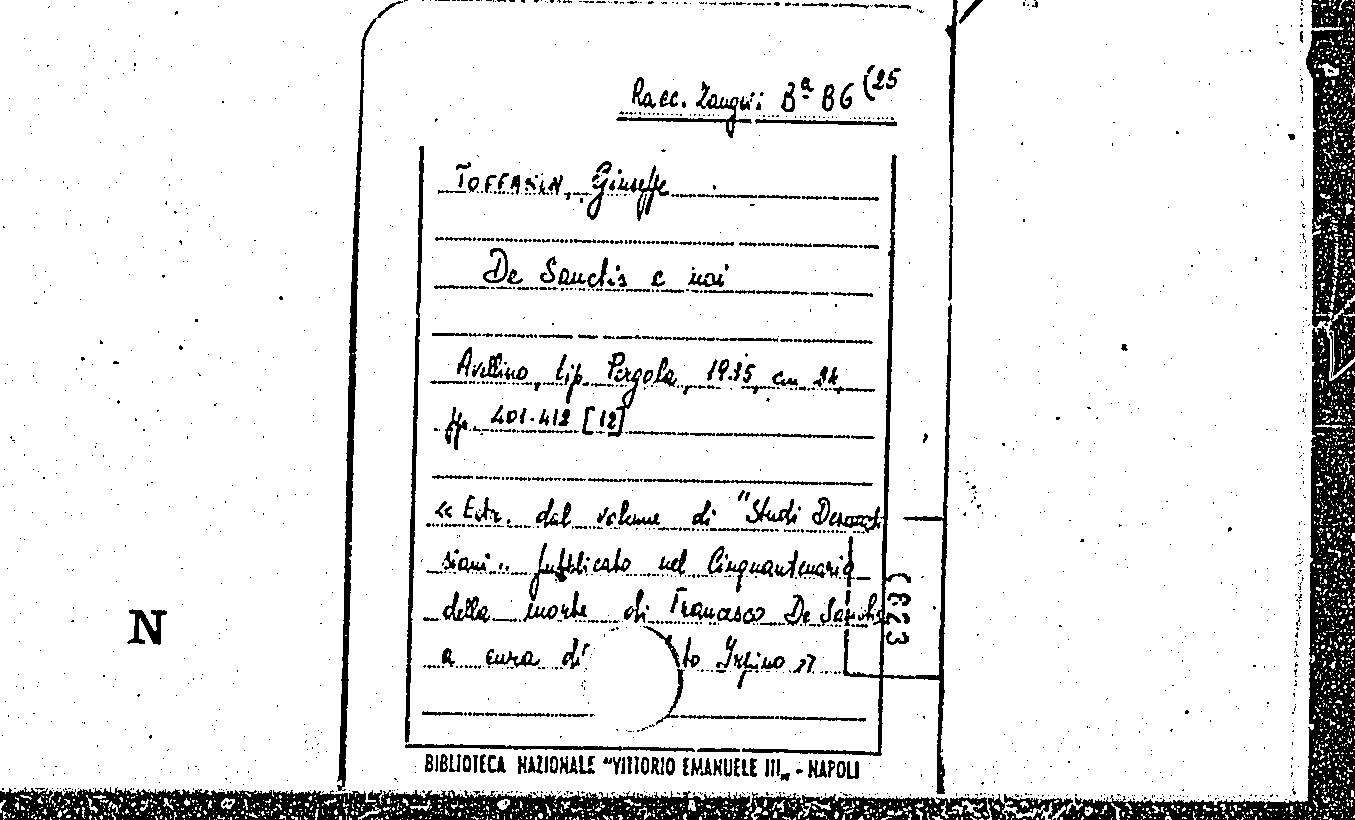 Racc. Zangari Bª B6 (25
TOFFANIN, Giuseppe
De Sanctis e noi
Avellino, tip. Pergola, 1935, cm 24,
pp. 401-412 [12]
« Estr. dal volume di "Studi Desancti
siani" pubblicato nel Cinquantenario
della morte di Francesco De Sanctis
a cura di to Irpino »
N
BIBLIOTECA NAZIONALE "VITTORIO EMANUELE III„ - NAPOLI